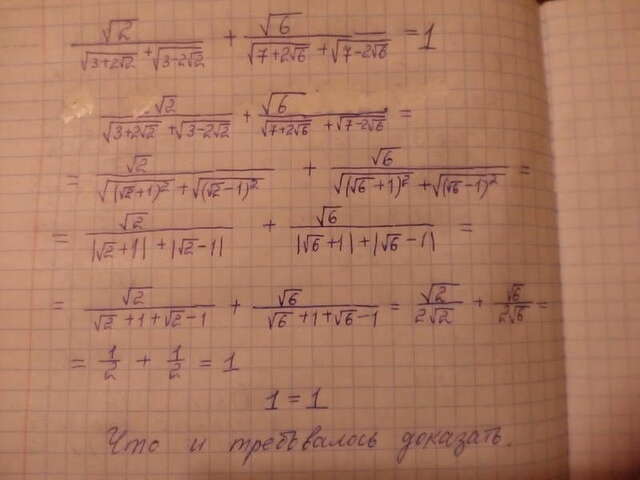 √2/(√(3+2√2) + √(3-2√2)) + √6/(√(7+2√6) + √(7-2√6)) = 1
√2/(√(3+2√2) + √(3-2√2)) + √6/(√(7+2√6) + √(7-2√6)) =
= √2/(√((√2+1)²) + √((√2-1)²)) + √6/(√((√6+1)²) + √((√6-1)²)) =
= √2/(|√2+1| + |√2-1|) + √6/(|√6+1| + |√6-1|) =
= √2/(√2+1+√2-1) + √6/(√6+1+√6-1) = √2/(2√2) + √6/(2√6) =
= 1/2 + 1/2 = 1
1 = 1
Что и требовалось доказать.